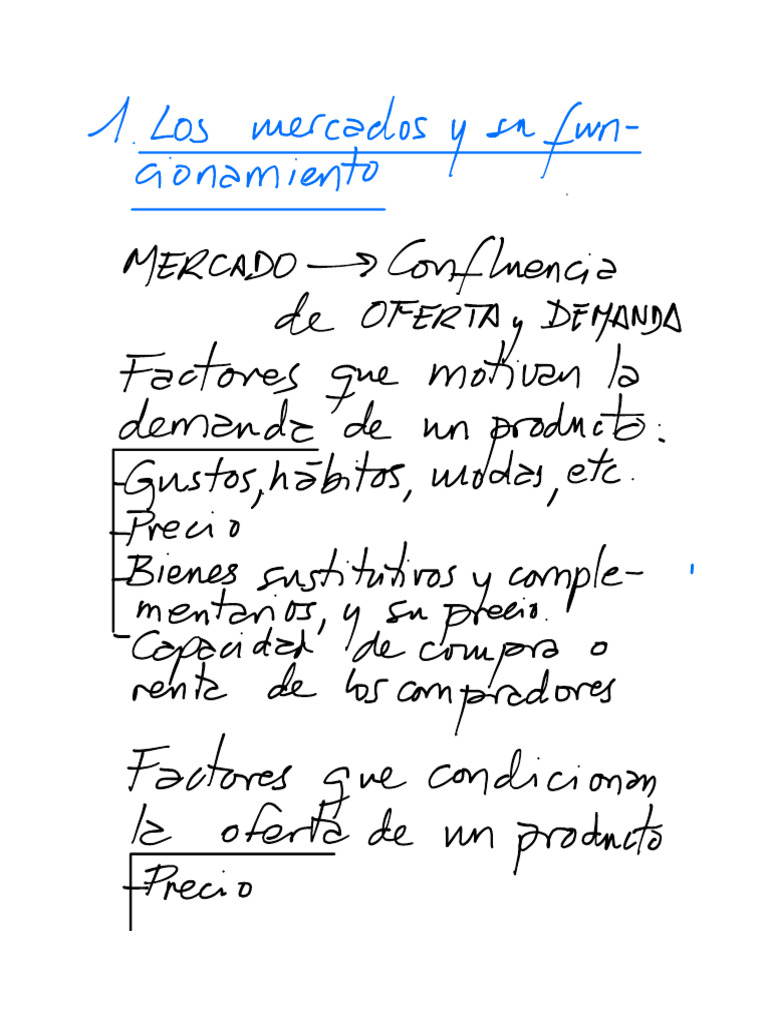 1. Los mercados y su fun-
cionamiento
MERCADO → Confluencia
de OFERTA y DEMANDA
Factores que motivan la
demanda de un producto:
- Gustos, hábitos, modas, etc.
- Precio
- Bienes sustitutivos y comple-
mentarios, y su precio.
- Capacidad de compra o
renta de los compradores
Factores que condicionan
la oferta de un producto
- Precio